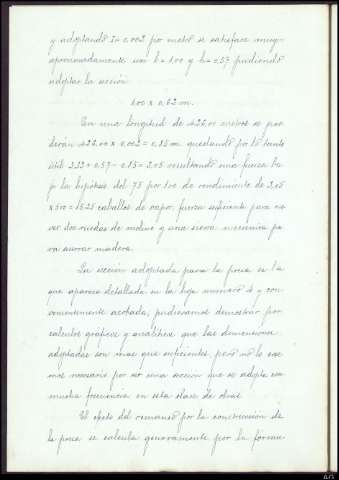 y adoptando I = 0,002 por metro se satisface muy
aproximadamente con b = 1,00 y h = 0,57 pudiendo
adoptar la sección
1,00 x 0,62 m.
En una longitud de 426,00 metros se per
derán 426,00 x 0,002 = 0,85 m quedando por lo tanto
útil 3,33 + 0,57 - 0,85 = 3,05 resultando una fuerza ba
jo la hipótesis del 75 por 100 de rendimiento de 3,05
x 500 = 1525 caballos de vapor, fuerza suficiente para mo
ver dos ruedas de molino y una sierra mecánica pa
ra aserrar madera.
La sección adoptada para la presa es la
que aparece detallada en la hoja número 4 y con
venientemente acotada; pudieramos demostrar por
calculos gráficos y analíticos que las dimensiones
adoptadas son mas que suficientes, pero no lo cree
mos necesario por ser una seccion que se adopta con
mucha frecuencia en esta clase de obras.
El efecto del remanso por la construcción de
la presa se calcula generalmente por la fórmu-